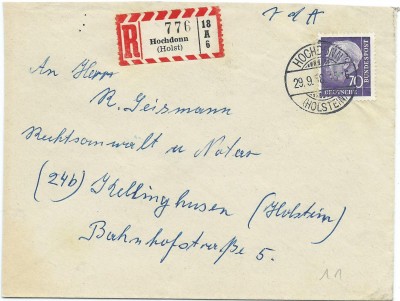 V d A
R 776 18 A 6
Hochdonn
(Holst)
HOCHDONN
29.9.
(HOLSTEIN)
70
DEUTSCHE BUNDESPOST
An Herrn
R. Geismann
Rechtsanwalt u Notar
(24b) Kellinghusen (Holstein)
Bahnhofstraße 5.
11